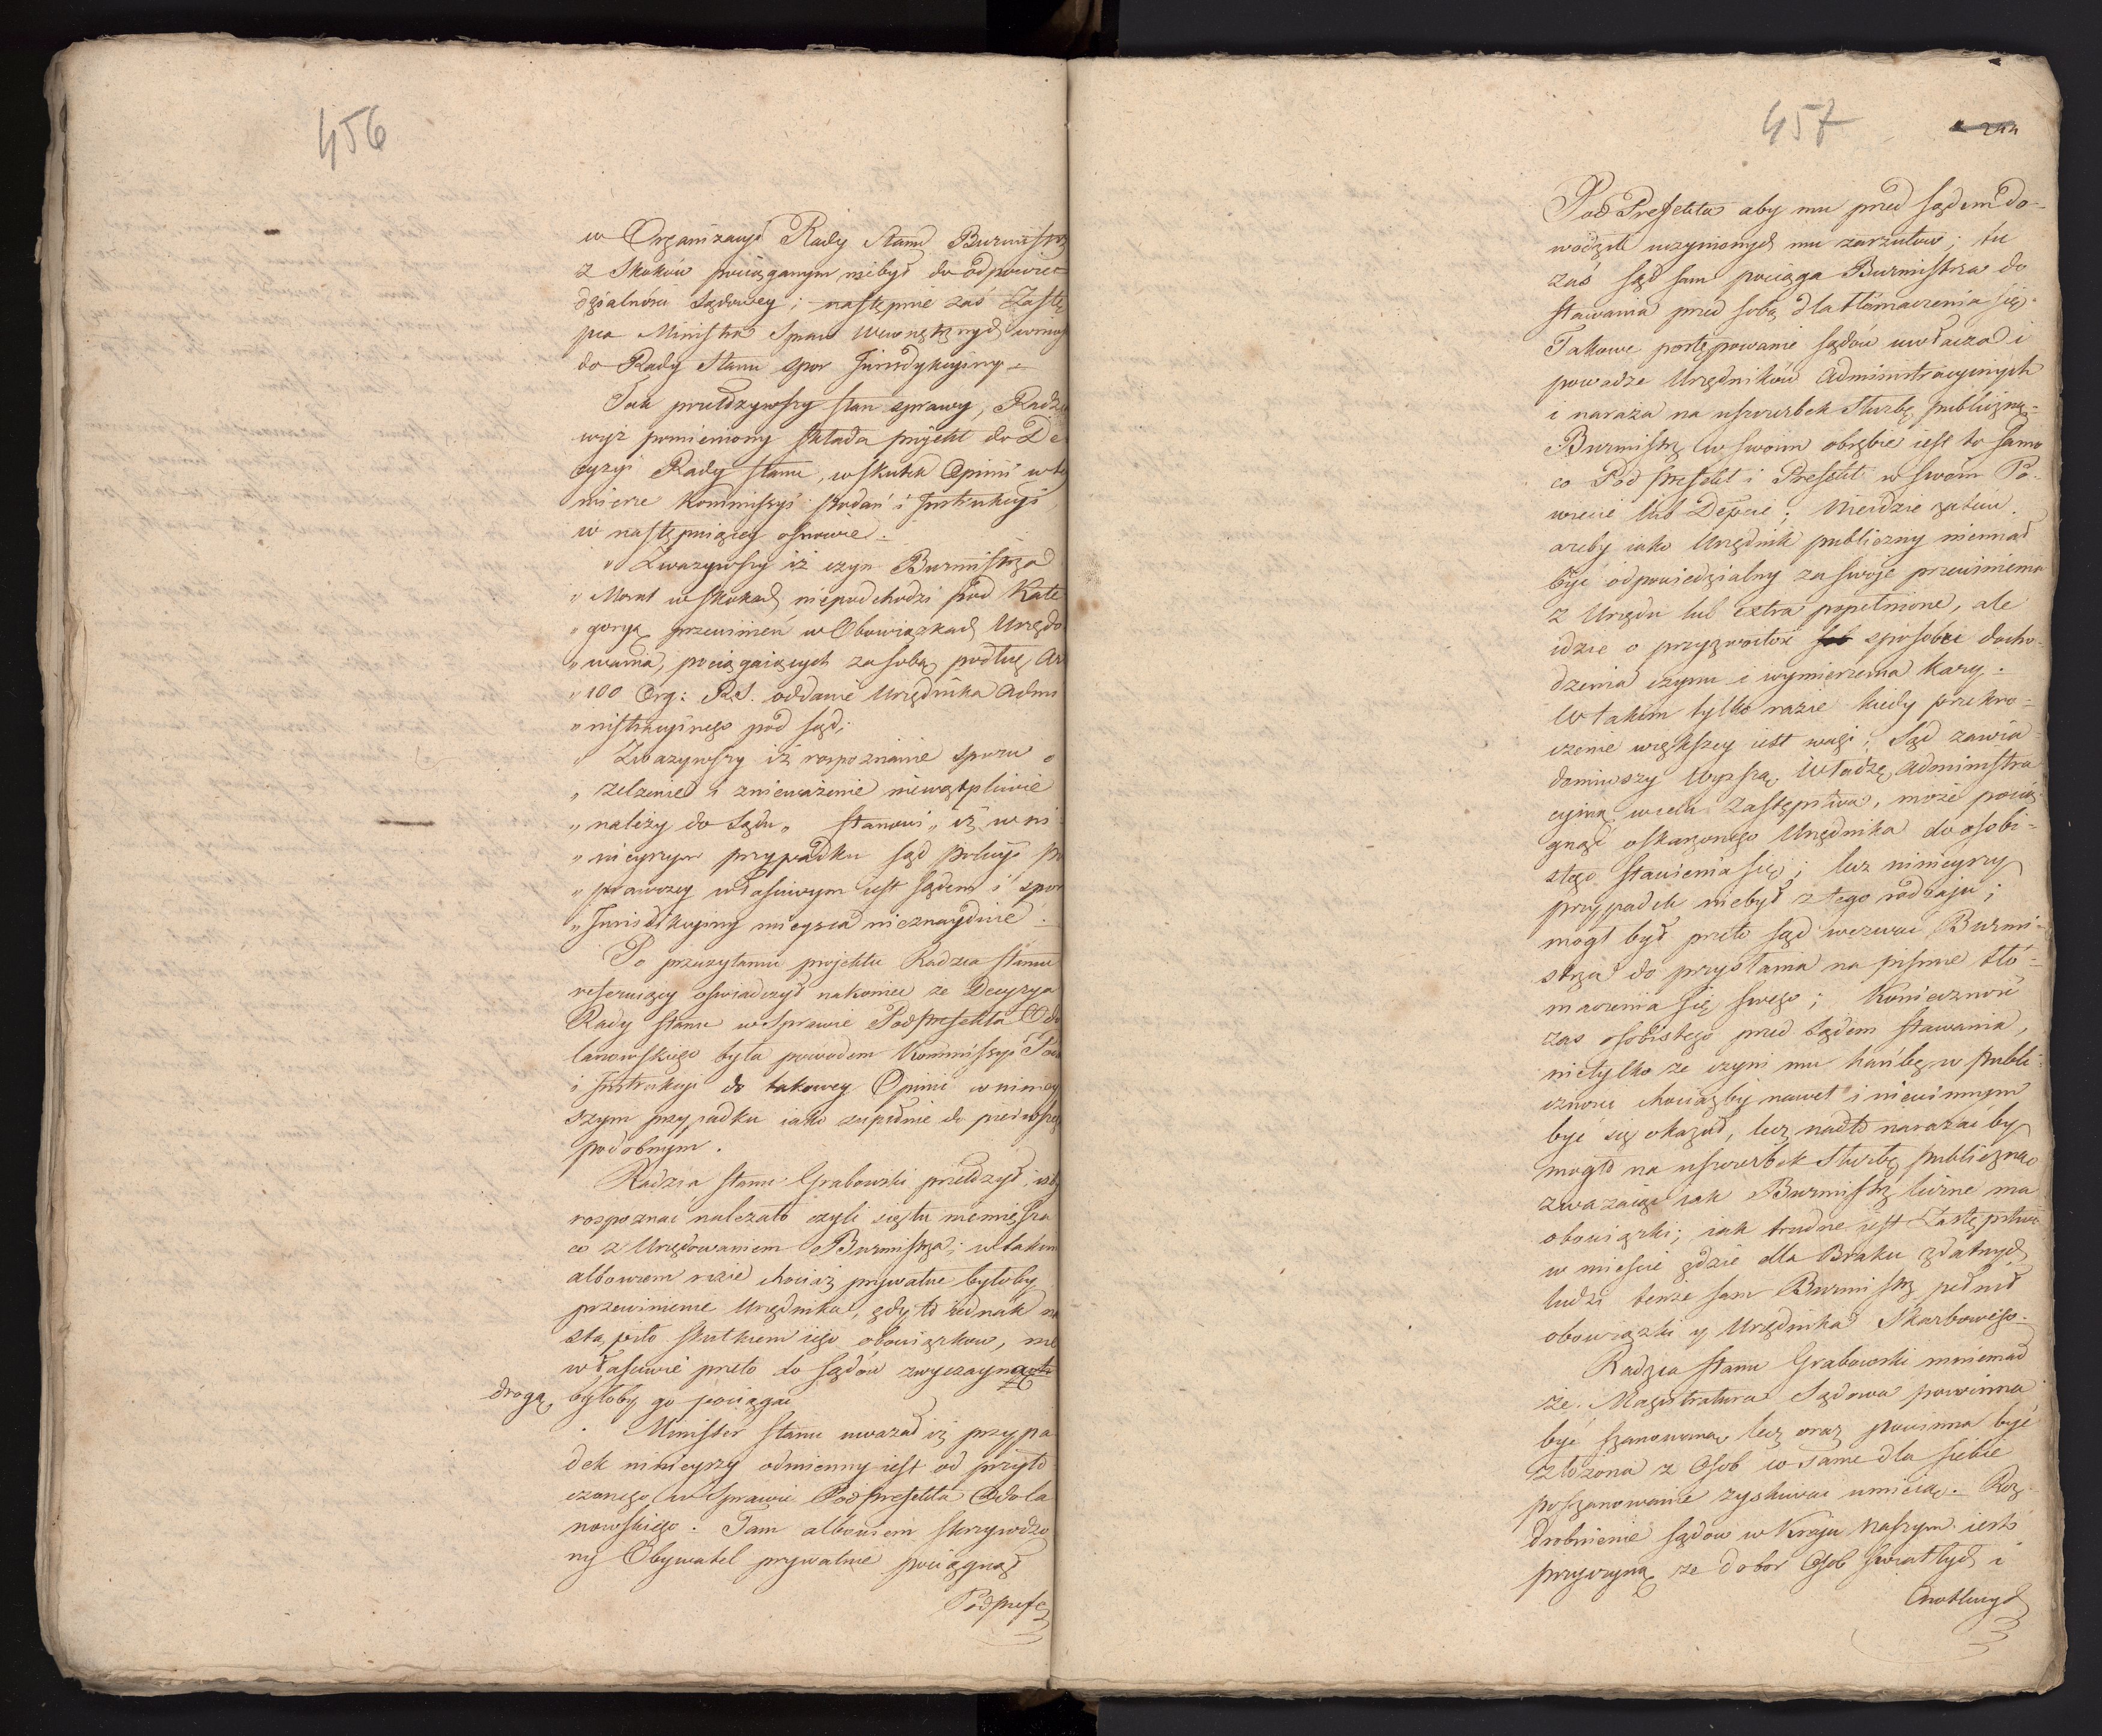 456
w Organizacyi Rady Stanu Burmistrz
z Skoków pociąganym niebył do odpowie-
dzialności Sądowey; następnie zaś Zastę
pca Ministra Spraw Wewnętrznych wniosł
do Rady Stanu spor Jurisdykcyiny.
Tak przełożywszy stan sprawy, Radzca
wyż pomieniony składa projekt do De
cyzyi Rady Stanu, w skutek Opinii w tey
mierze Kommissyi Podań i Instrukcyi
w następuiącey osnowie.
„ Zważywszy iż czyn Burmistrza
„ Miast w Skokach niepodchodzi pod Kate
„ goryą przewinień w Obowiązkach Urzędo
„ wania, pociągaiących za sobą podług Art
„ 100 Org: R.S. oddanie Urzędnika Admi
„ nistracyinego pod Sąd;
„ Zważywszy iż rozpoznanie sporu o
„ zelżenie i znieważenie niewątpliwie
„ należy do Sądu, stanowi, iż w ni
„ nieyszym przypadku sąd Policyi po
„ prawczey właściwym iest sądem i spor
„ Jurisdikcyiny mieysca nieznayduie.
Po przeczytaniu projektu Radzca Stanu
referuiący oświadczył nakoniec że Decyzya
Rady Stanu w Sprawie Podprefekta Odo
lanowskiego była powodem Kommissyi Podań
i Instrukcyi do takowey Opinii w niniey
szym przypadku iako zupełnie do pierwszego
podobnym.
Radzca Stanu Grabowski przełożył, iżby
rozpoznać należało czyli się tu niemięsza
co z Urzędowaniem Burmistrza; w takim
albowiem razie chociaż prywatne byłoby
przewinienie Urzędnika, gdy to iednak na
stąpiło skutkiem iego obowiązkow, nie
właściwie przeto do sądów zwyczayną
drogą byłoby go pociągać
Minister Stanu uważał iż przypa
dek ninieyszy odmienny iest od przyto
czonego w Sprawie Podprefekta Odola
nowskiego. Tam albowiem skrzywdzo
ny Obywatel prywatnie pociągnął
Podprefe
457
244
Pod Prefekta aby mu przed sądem do-
wodził uczynionych mu zarzutów; tu
zaś sąd sam pociąga Burmistrza do
stawania przed sobą dla tłómaczenia się.
Takowe postępowanie sądów uwłacza i
powadze Urzędników Administracyinych
i naraża na uszczerbek służbę publiczną.
Burmistrz w swoim obrębie iest to samo
co Pod prefekt i Prefekt w swoim Po-
wiecie lub Depcie; nieidzie zatem
ażeby iako Urzędnik publiczny niemiał
być odpowiedzialny za swoje przewinienia
z Urzędu lub extra popełnione, ale
idzie o przyzwoitość sposobie docho-
dzenia czynu i wymierzenia kary.
W takim tylko razie kiedy przekro-
czenie większey iest wagi, Sąd zawia
domiwszy Wyższą Władzę Administra
cyiną w celu zastępstwa, może pocią
gnąć oskarżonego Urzędnika do osobi-
stego stawienia się; lecz ninieyszy
przypadek niebył z tego rodzaju;
mogł był przeto sąd wezwać Burmi-
strza do przysłania na piśmie tłó-
maczenia się swego; Konieczność
zaś osobistego przed Sądem stawania,
nietylko że czyni mu hańbę w publi-
czności chociażby nawet i niewinnym
być się okazał, lecz nadto narażać by
mogło na uszczerbek Służbę publiczną
zważaiąc iak Burmistrz liczne ma
obowiązki; iak trudne iest Zastępstwo
w mieście gdzie dla Braku zdatnych
ludzi tenże sam Burmistrz pełnił
obowiązki y Urzędnika Skarbowego.
Radzca Stanu Grabowski mniemał
że Magistratura Sądowa powinna
być szanowana, lecz oraz powinna być
złożona z Osob co same dla siebie
poszanowanie zyskiwać umieią. Roz-
drobnienie sądów w Kraju naszym iest
przyczyną że dobor Osob światłych i
Cnotliwych